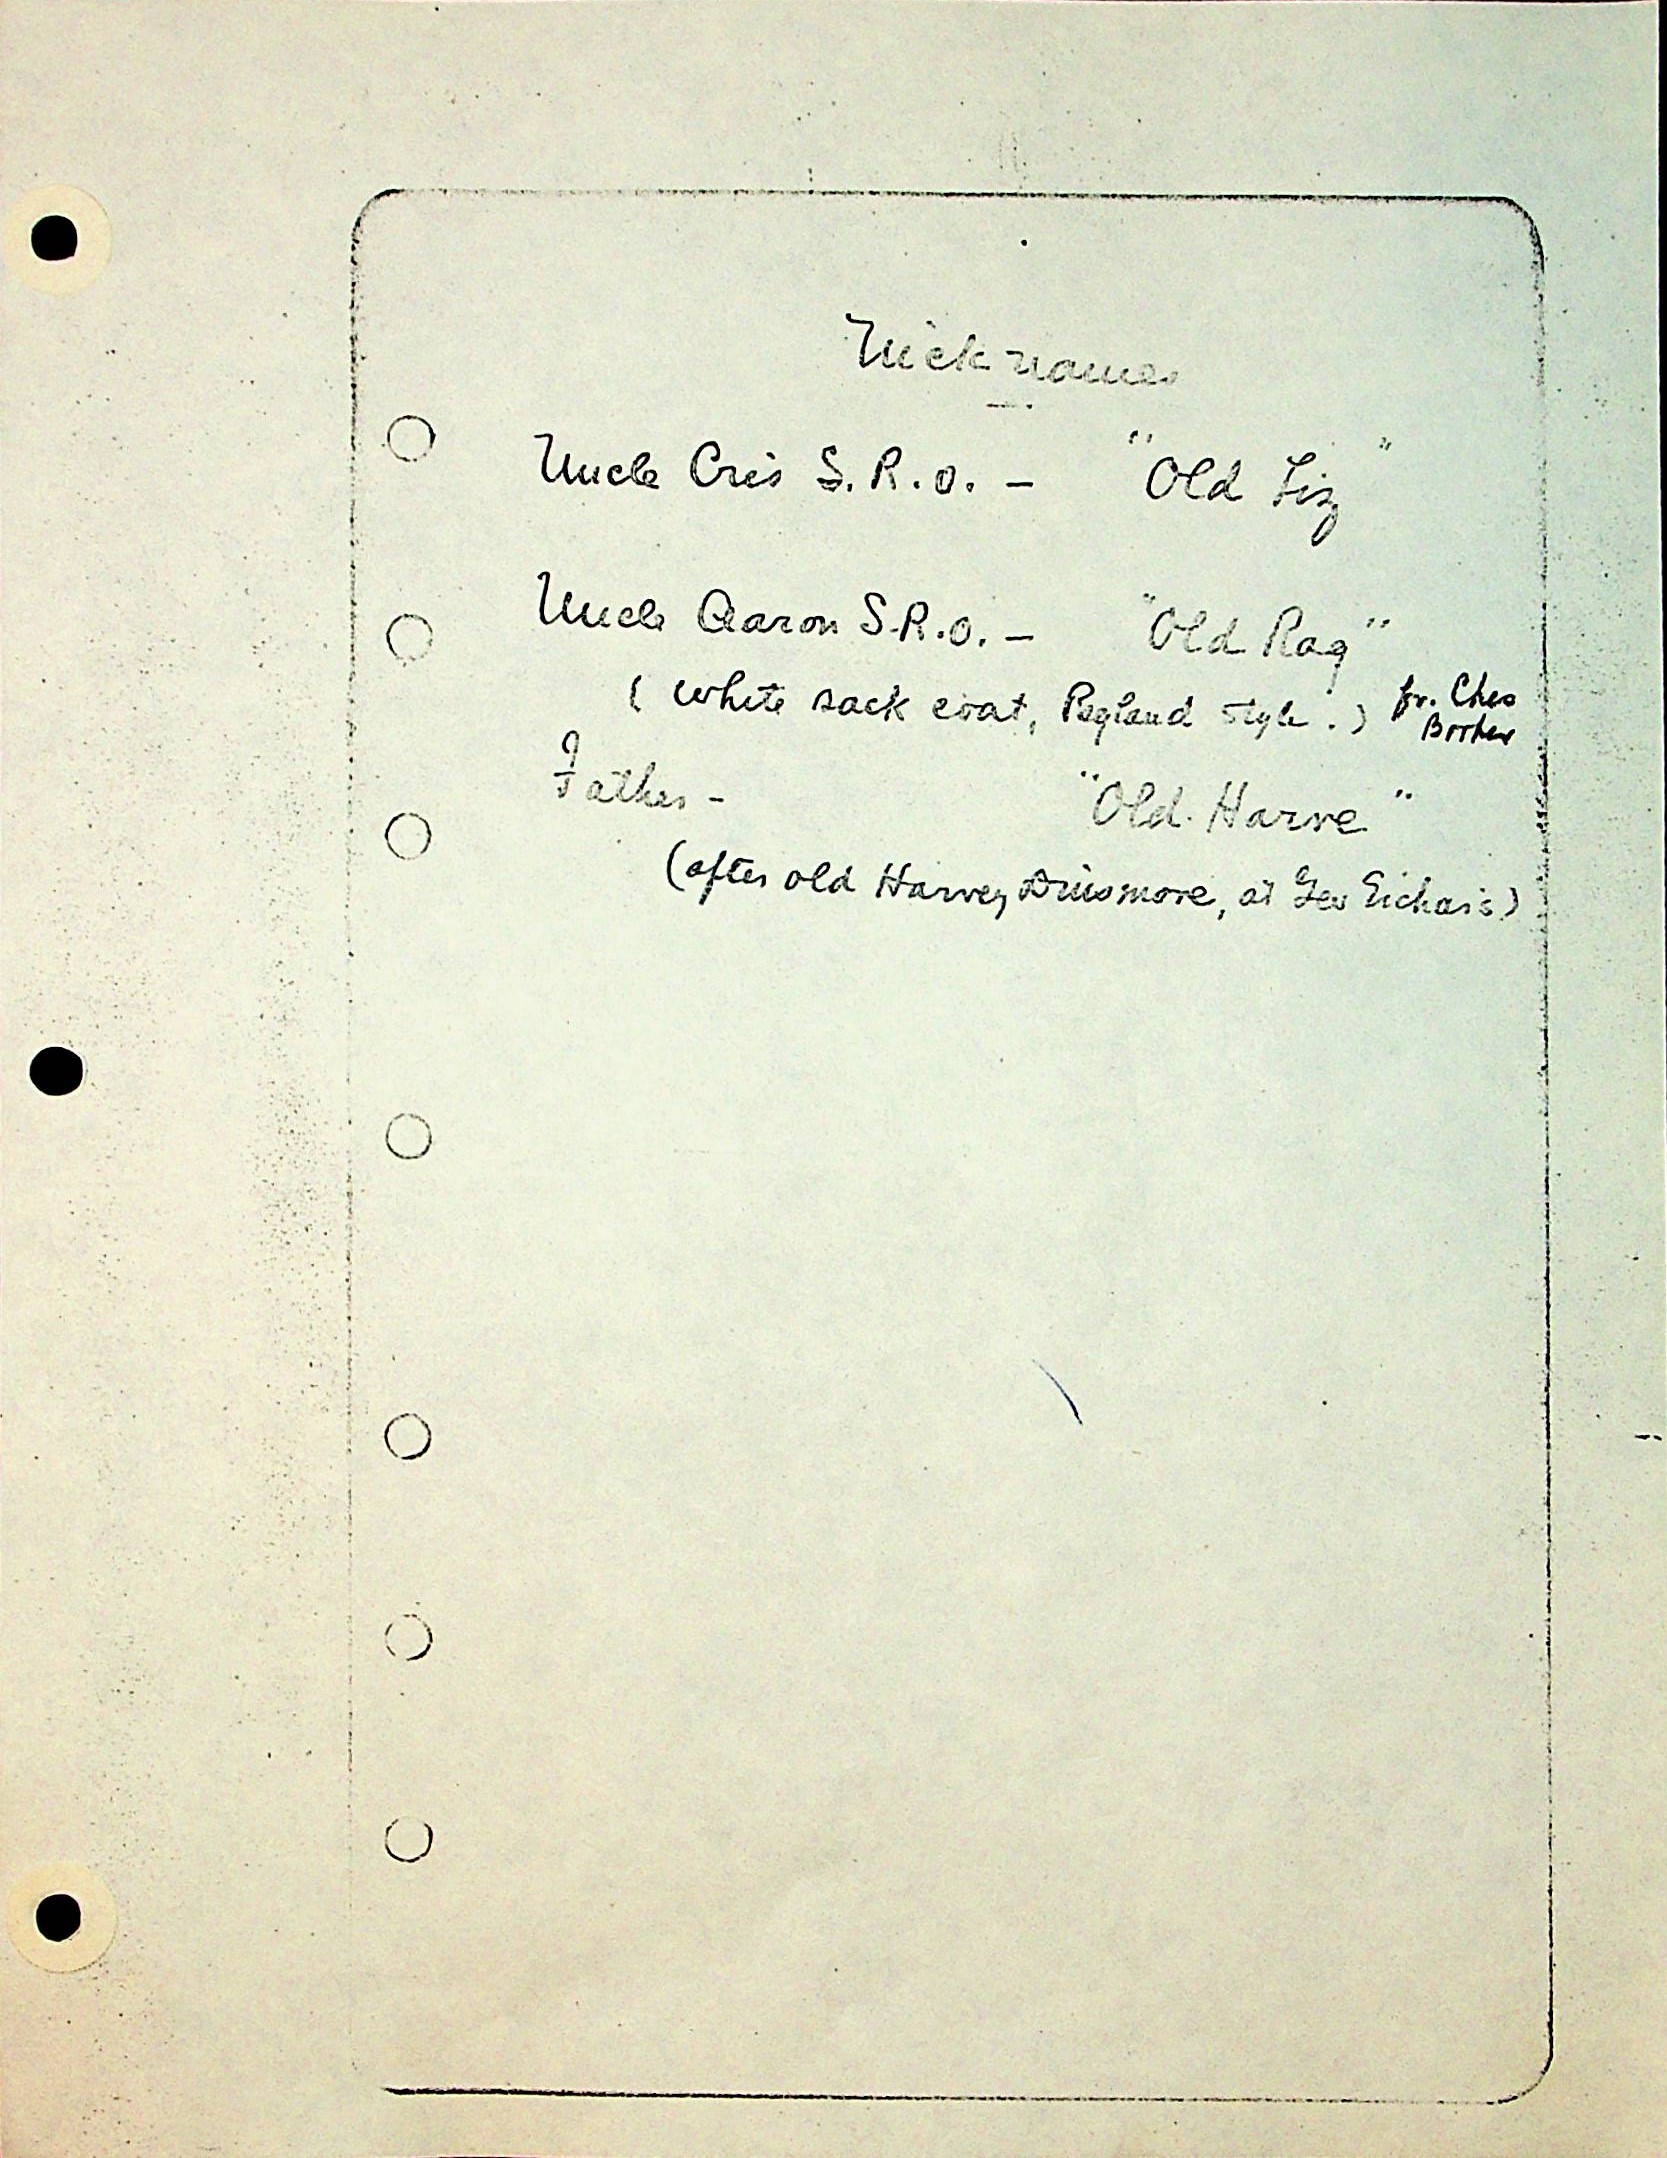 Nicknames
Uncle Cris S.R.O. - "Old Liz"
Uncle Aaron S.R.O. - "Old Rag"
(White sack coat, Ragland style.) fr. Ches
Father - "Old Harve"
(after old Harvey Dinsmore, at Geo